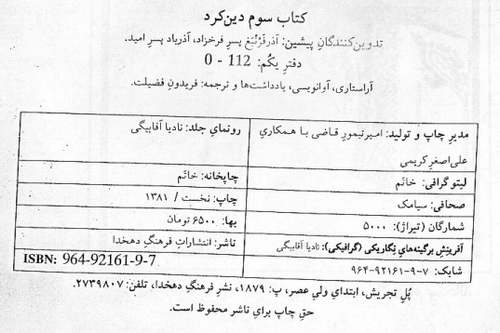 کتاب سوم دین‌کرد
تدوین‌کنندگانِ پیشین: آذرفَرْنْبَغ پسرِ فرخزاد، آذرباد پسرِ امید.
دفترِ یکُم: 112 - 0
آراستاری، آوانویسی، یادداشت‌ها و ترجمه: فریدونِ فضیلت.
مدیرِ چاپ و تولید: امیرتیمورِ قاضی با همکاریِ
علی‌اصغرِ کریمی
رونمایِ جلد: نادیا آقابیگی
لیتوگرافی: خاتَم
چاپخانه: خاتَم
صحافی: سیامک
چاپ: نخست / ۱۳۸۱
شمارگان (تیراژ): ۵۰۰۰
بها: ۶۵۰۰ تومان
آفرینشِ برگینه‌هایِ نِگاریکی (گرافیکی): نادیا آقابیگی
ناشر: انتشاراتِ فرهنگِ دهخدا
شابک: ۷-۹-۹۲۱۶۱-۹۶۴
ISBN: 964-92161-9-7
پُلِ تجریش، ابتدایِ ولی عصر، پ: ۱۸۷۹، نشرِ فرهنگِ دهخدا، تلفن: ۲۷۳۹۸۰۷.
حقِ چاپ برایِ ناشر محفوظ است.